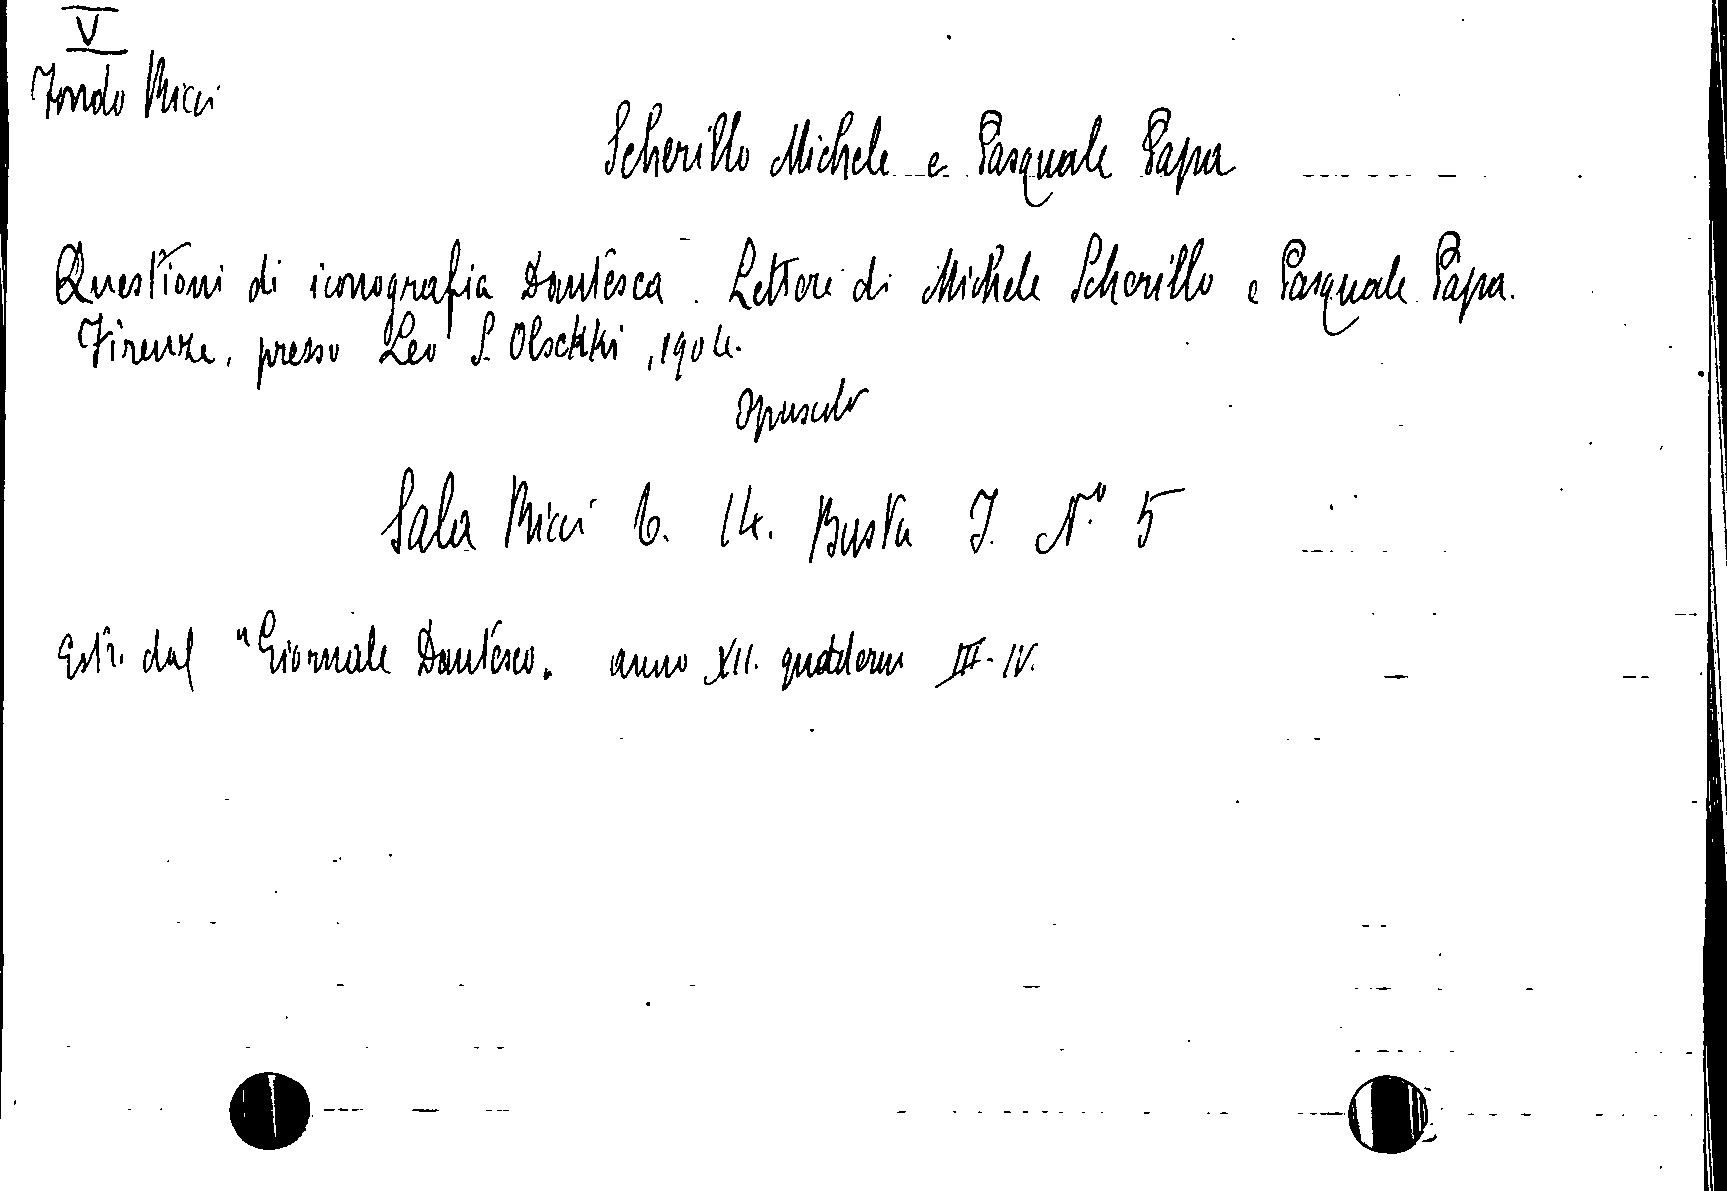 V
Fondo Ricci
Scherillo Michele e Pasquale Papa
Questioni di iconografia Dantesca. Lettere di Michele Scherillo e Pasquale Papa.
Firenze, presso Leo S. Olschki, 1904.
Opuscolo
Sala Ricci 6. 14. Busta I. N.o 5
Estr. dal "Giornale Dantesco„ anno XII. quaderni III-IV.